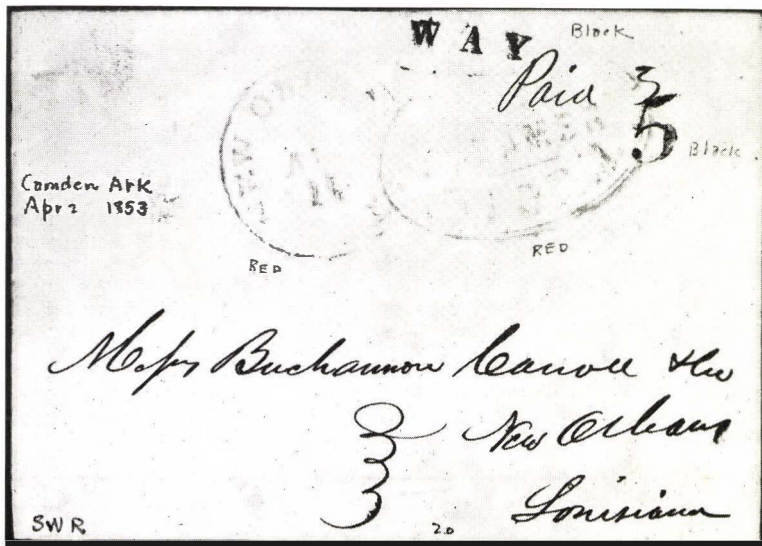 WAY Black
Paid 3
5 Black
NEW O
Camden Ark
Apr 2 1853
RED
RED
Messrs Buchannon Carroll & Co
New Orleans
Louisiana
SWR
20